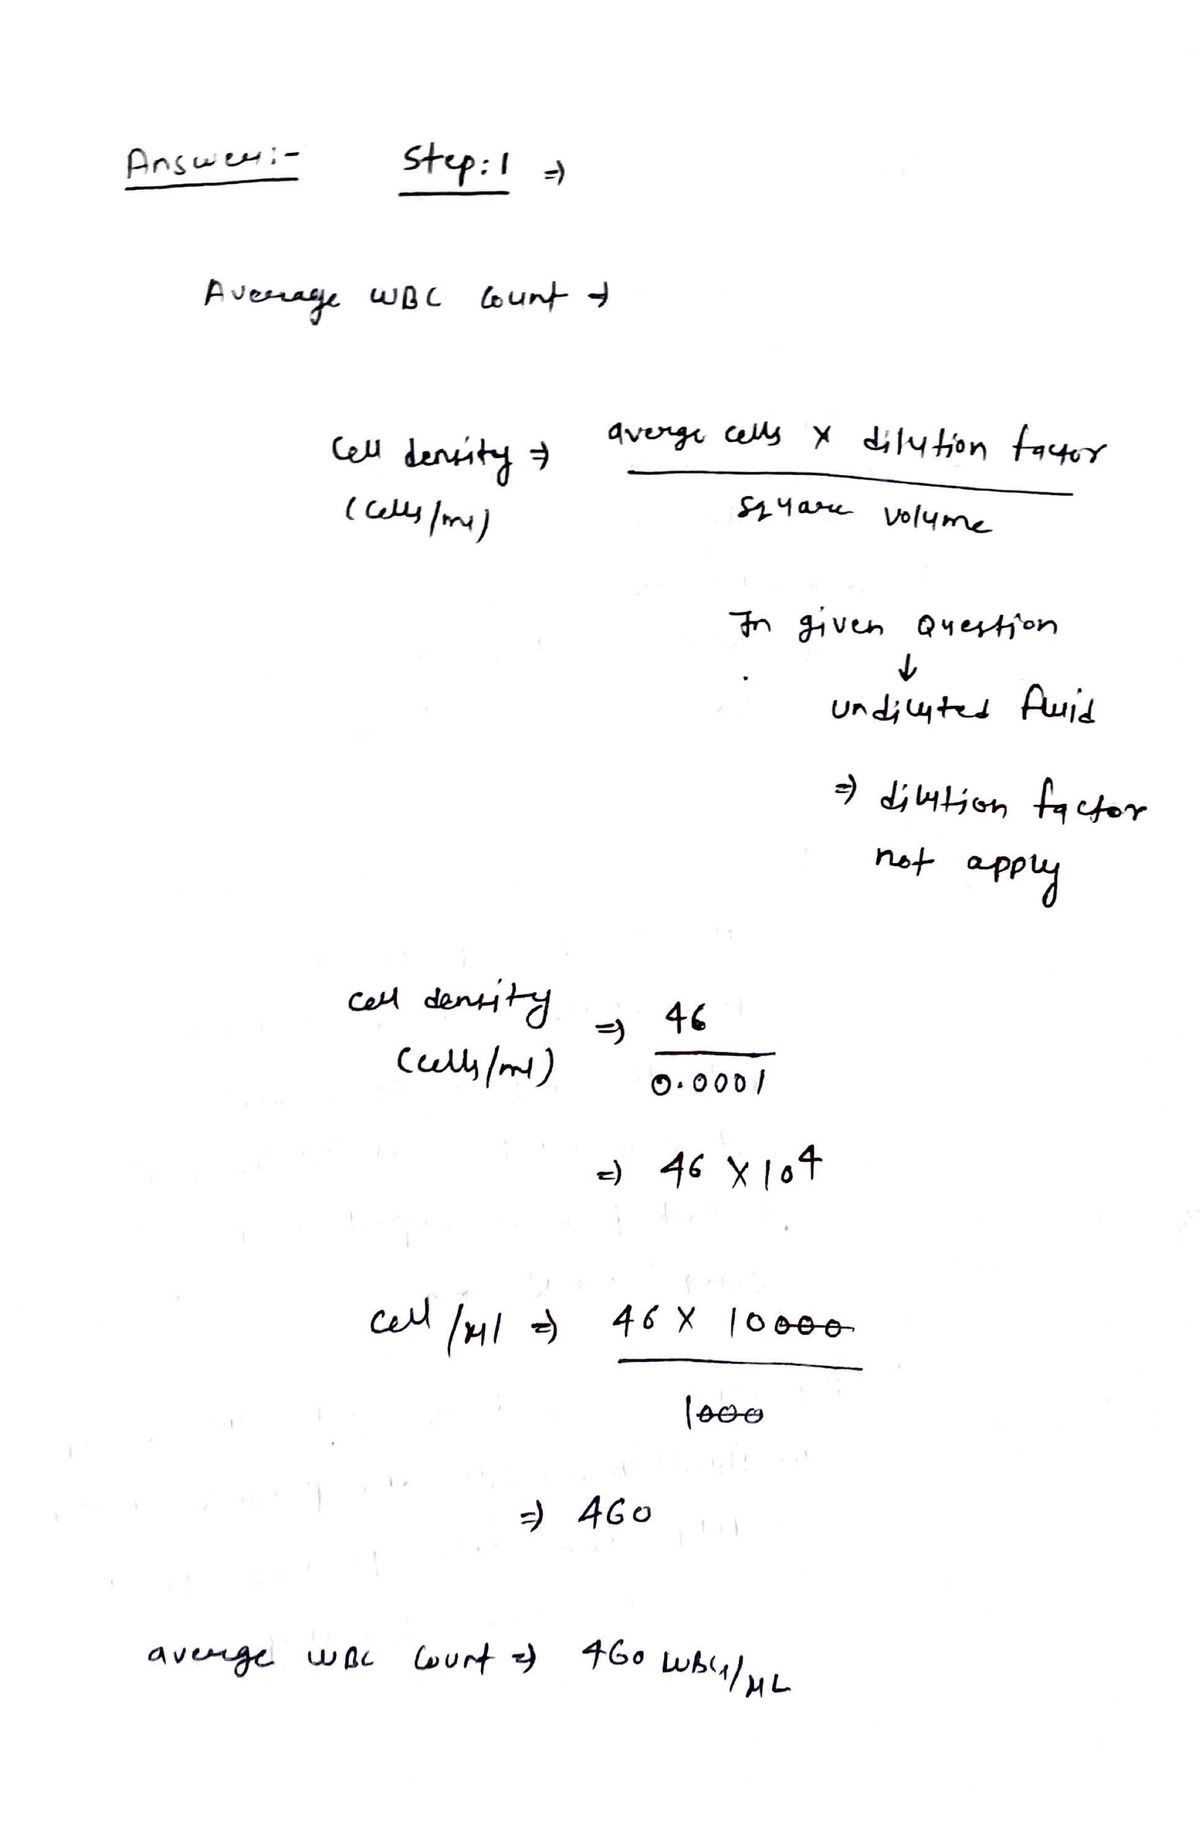 Answer:- Step:1 ⇒
Average WBC Count ⇒
Cell density ⇒ averge cells × dilution factor
(cells/ml) square volume
In given Question
↓
undiluted fluid
⇒ dilution factor
not apply
cell density ⇒ 46
(cells/ml) 0.0001
⇒ 46 × 10⁴
cell/µl ⇒ 46 × 10000
1000
⇒ 460
averge WBC Count ⇒ 460 WBCs/µL